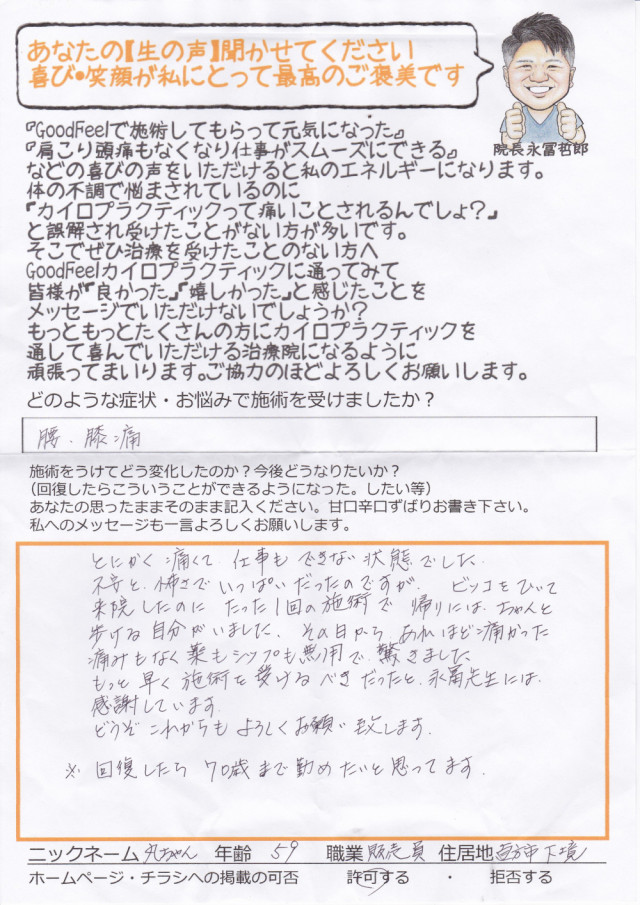 あなたの【生の声】聞かせてください
喜び●笑顔が私にとって最高のご褒美です
院長永冨哲郎
『GoodFeelで施術してもらって元気になった』
『肩こり頭痛もなくなり仕事がスムーズにできる』
などの喜びの声をいただけると私のエネルギーになります。
体の不調で悩まされているのに
『カイロプラクティックって痛いことされるんでしょ？』
と誤解され受けたことがない方が多いです。
そこでぜひ治療を受けたことのない方へ
GoodFeelカイロプラクティックに通ってみて
皆様が『良かった』『嬉しかった』と感じたことを
メッセージでいただけないでしょうか？
もっともっとたくさんの方にカイロプラクティックを
通して喜んでいただける治療院になるように
頑張ってまいります。ご協力のほどよろしくお願いします。
どのような症状・お悩みで施術を受けましたか？
腰、膝痛
施術をうけてどう変化したのか？今後どうなりたいか？
（回復したらこういうことができるようになった。したい等）
あなたの思ったままそのまま記入ください。甘口辛口ずばりお書き下さい。
私へのメッセージも一言よろしくお願いします。
とにかく痛くて、仕事もできない状態でした。
不安と、怖さでいっぱいだったのですが、ビッコをひいて
来院したのにたった1回の施術で帰りには、ちゃんと
歩ける自分がいました、その日からあれほど痛かった
痛みもなく薬もシップも無用で、驚きました
もっと早く施術を受けるべきだったと、永冨先生には、
感謝しています。
どうぞこれからもよろしくお願い致します。
※回復したら70歳まで勤めたいと思ってます。
ニックネーム 丸ちゃん 年齢 59 職業 販売員 住居地 直方市下境
ホームページ・チラシへの掲載の可否 許可する ・ 拒否する